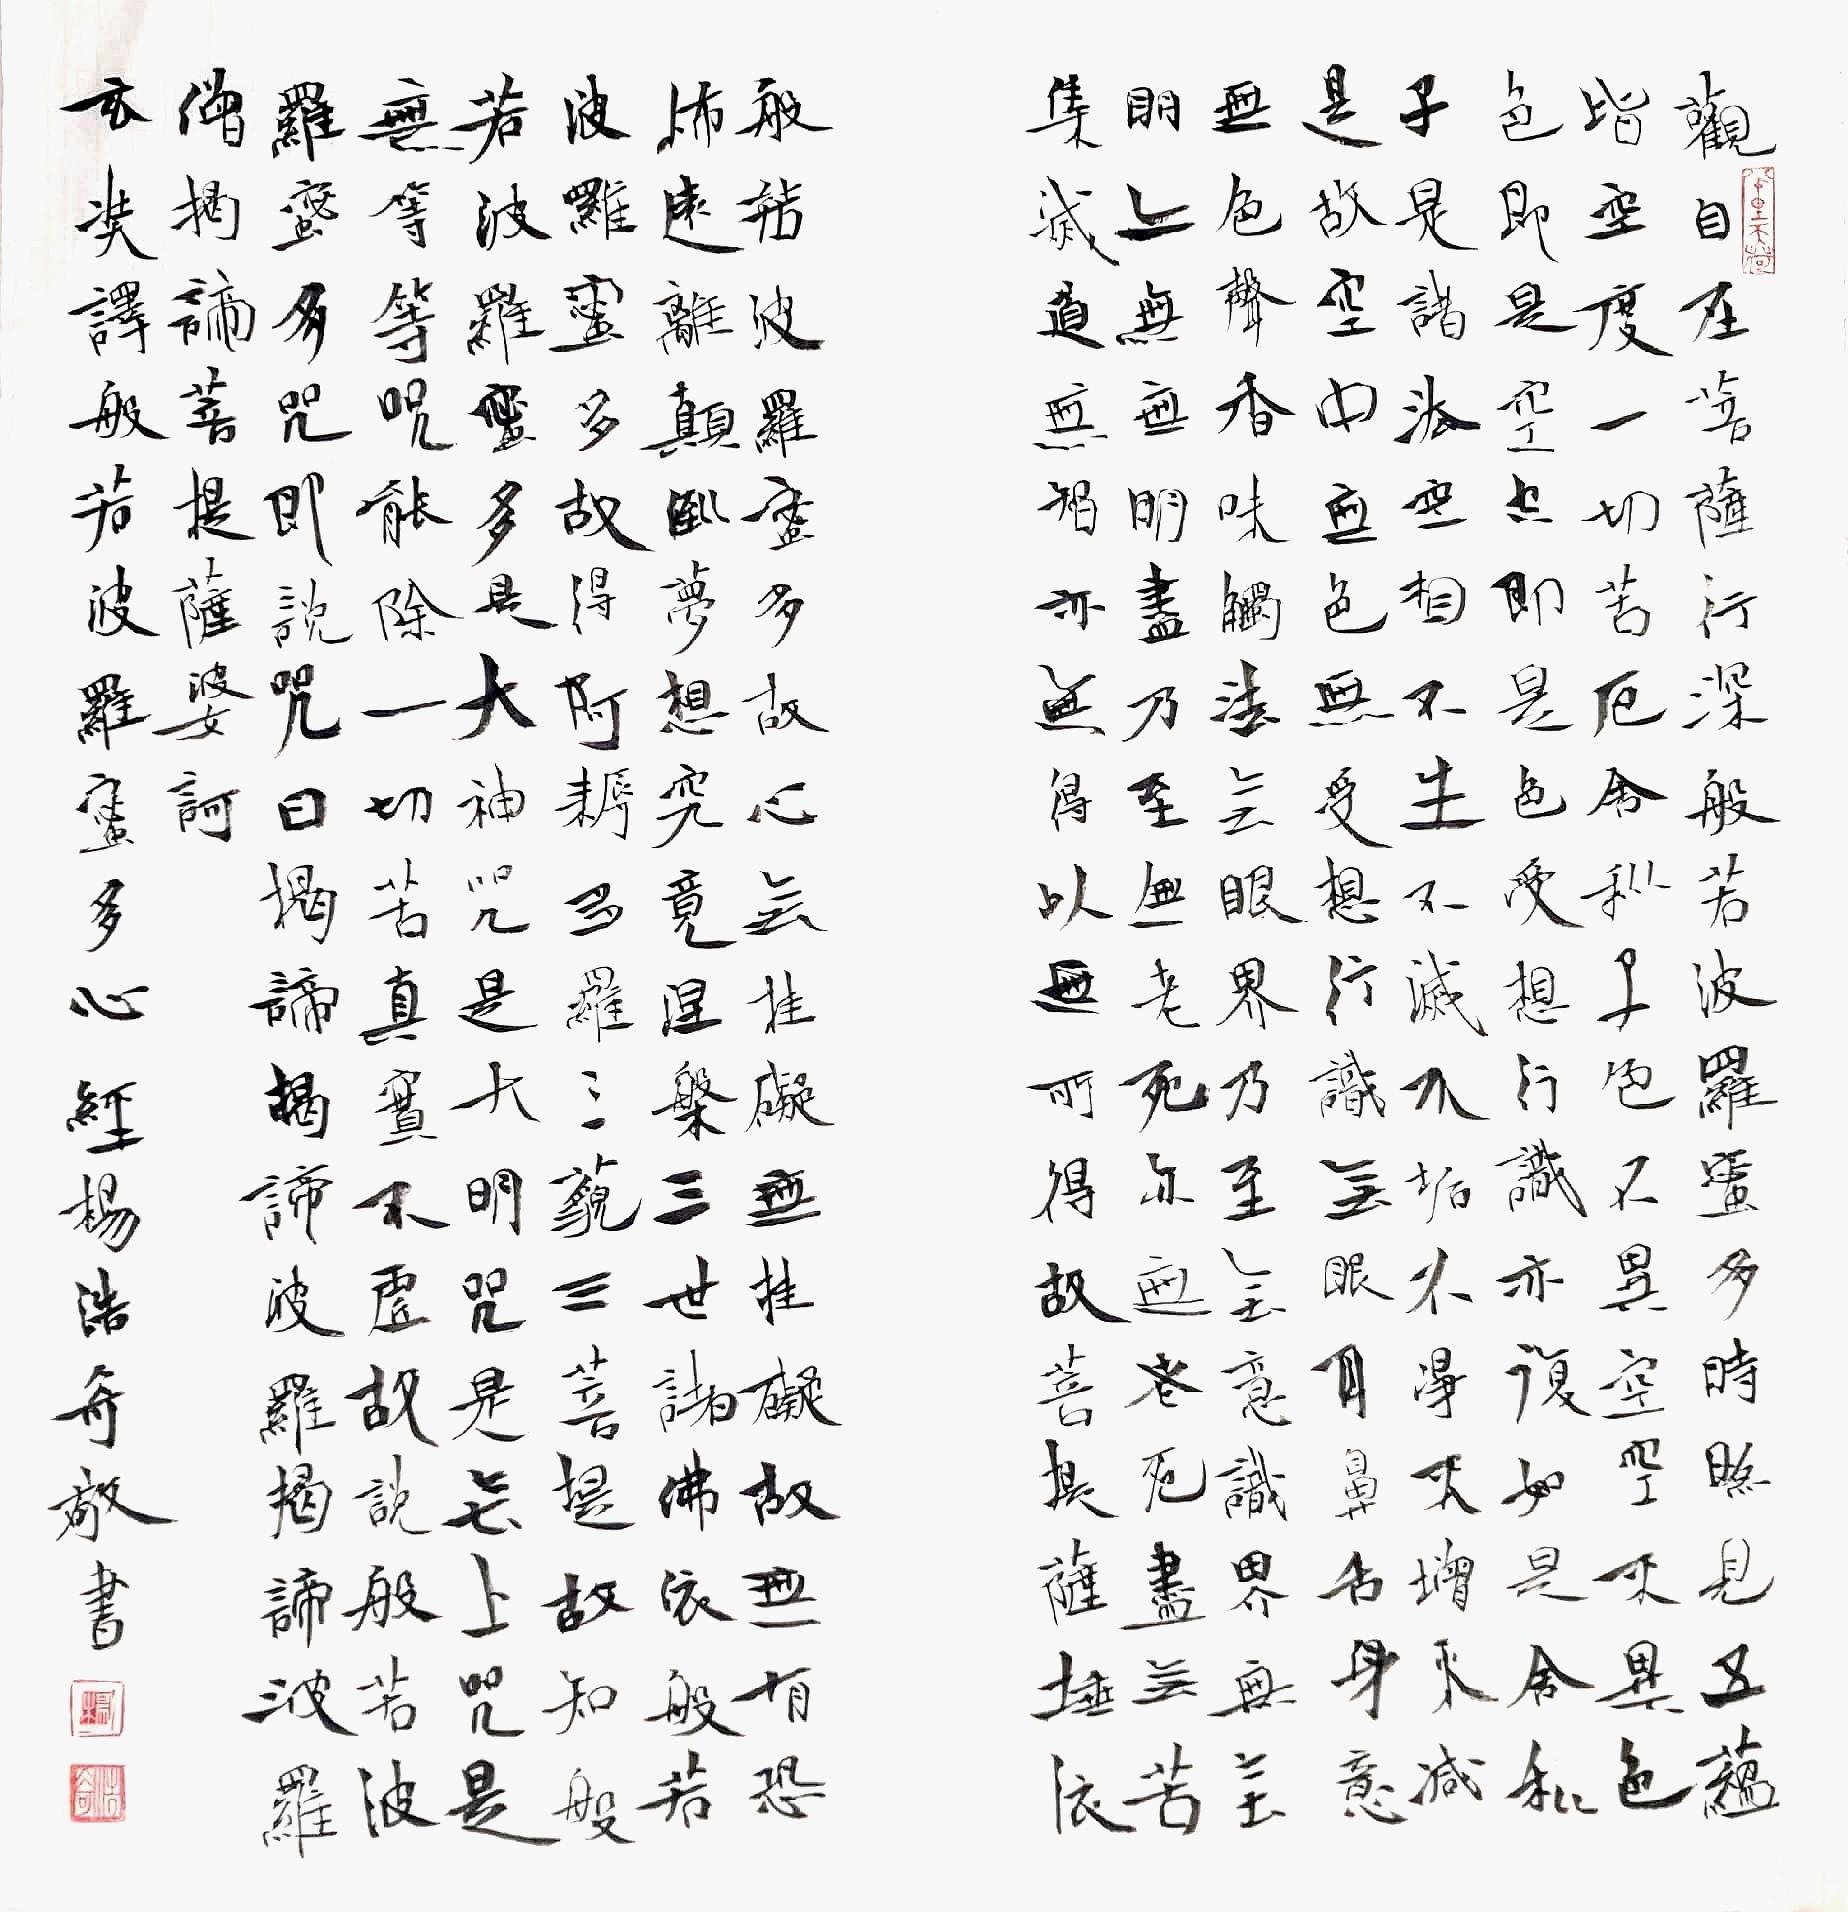 觀自在菩薩行深般若波羅蜜多時照見五蘊
皆空度一切苦厄舍利子色不異空空不異色
色即是空空即是色受想行識亦復如是舍利
子是諸法空相不生不滅不垢不淨不增不減
是故空中無色無受想行識無眼耳鼻舌身意
無色聲香味觸法無眼界乃至無意識界無無
明亦無無明盡乃至無老死亦無老死盡無苦
集滅道無智亦無得以無所得故菩提薩埵依
般若波羅蜜多故心無挂礙無挂礙故無有恐
怖遠離顛倒夢想究竟涅槃三世諸佛依般若
波羅蜜多故得阿耨多羅三藐三菩提故知般
若波羅蜜多是大神咒是大明咒是無上咒是
無等等咒能除一切苦真實不虛故說般若波
羅蜜多咒即說咒曰揭諦揭諦波羅揭諦波羅
僧揭諦菩提薩婆訶
玄奘譯般若波羅蜜多心經楊浩奇敬書